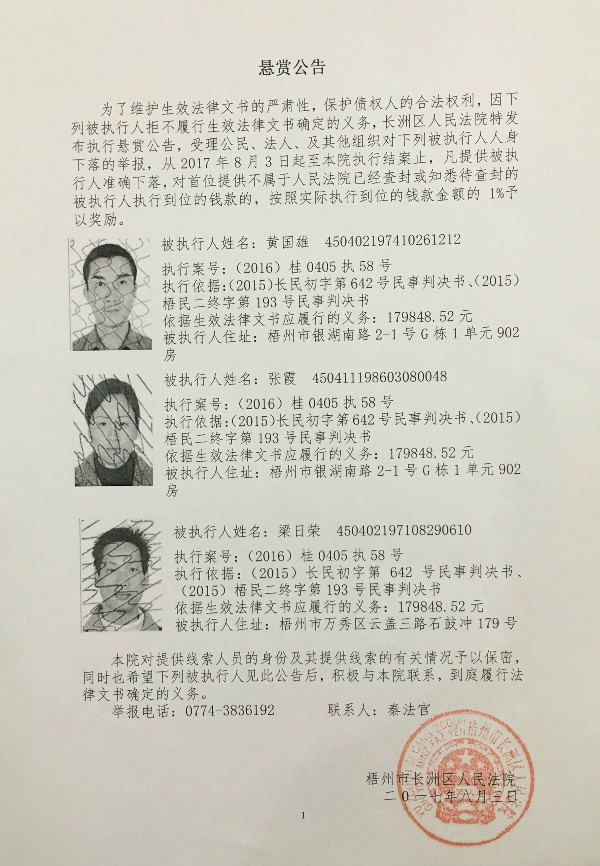 悬赏公告
为了维护生效法律文书的严肃性，保护债权人的合法权利，因下
列被执行人拒不履行生效法律文书确定的义务，长洲区人民法院特发
布执行悬赏公告，受理公民、法人、及其他组织对下列被执行人人身
下落的举报，从 2017 年 8 月 3 日起至本院执行结案止，凡提供被执
行人准确下落，对首位提供不属于人民法院已经查封或知悉待查封的
被执行人执行到位的钱款的，按照实际执行到位的钱款金额的 1%予
以奖励。
被执行人姓名：黄国雄 450402197410261212
执行案号：（2016）桂 0405 执 58 号
执行依据：(2015)长民初字第 642 号民事判决书、（2015）
梧民二终字第 193 号民事判决书
依据生效法律文书应履行的义务：179848.52 元
被执行人住址：梧州市银湖南路 2-1 号 G 栋 1 单元 902
房
被执行人姓名：张霞 450411198603080048
执行案号：（2016）桂 0405 执 58 号
执行依据：(2015)长民初字第 642 号民事判决书、（2015）
梧民二终字第 193 号民事判决书
依据生效法律文书应履行的义务：179848.52 元
被执行人住址：梧州市银湖南路 2-1 号 G 栋 1 单元 902
房
被执行人姓名：梁日荣 450402197108290610
执行案号：（2016）桂 0405 执 58 号
执行依据：（2015）长民初字第 642 号民事判决书、
（2015）梧民二终字第 193 号民事判决书
依据生效法律文书应履行的义务：179848.52 元
被执行人住址：梧州市万秀区云盖三路石鼓冲 179 号
本院对提供线索人员的身份及其提供线索的有关情况予以保密，
同时也希望下列被执行人见此公告后，积极与本院联系，到庭履行法
律文书确定的义务。
举报电话：0774-3836192 联系人：秦法官
梧州市长洲区人民法院
梧州市长洲区人民法院
二〇一七年八月三日
1